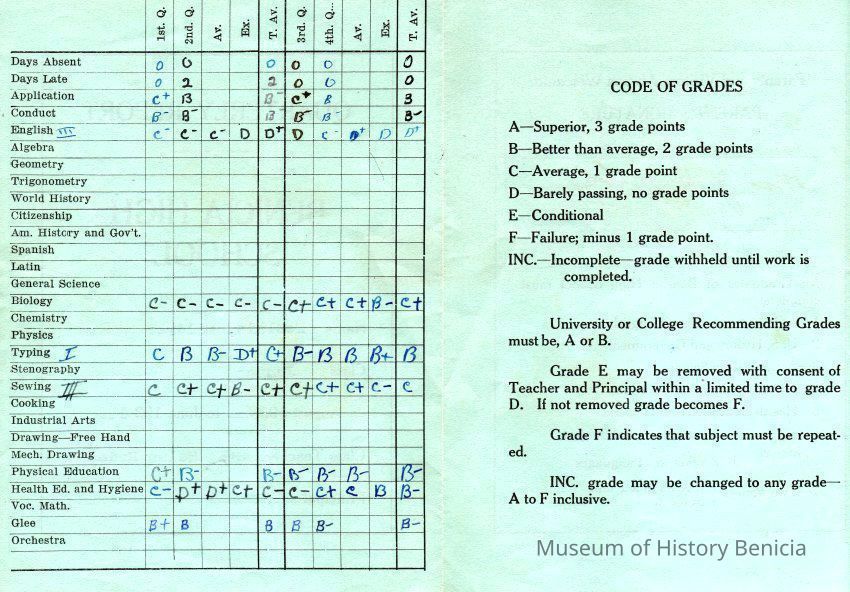 1st. Q. 2nd. Q. Av. Ex. T. Av. 3rd. Q. 4th. Q. Av. Ex. T. Av.
Days Absent 0 0 0 0 0 0
Days Late 0 2 2 0 0 0
Application C+ B B- C+ B B
Conduct B- B- B- B- B- B-
English III C- C- C- D D+ D C- D+ D D+
Algebra
Geometry
Trigonometry
World History
Citizenship
Am. History and Gov't.
Spanish
Latin
General Science
Biology C- C- C- C- C- C+ C+ C+ B- C+
Chemistry
Physics
Typing I C B B- D+ C+ B- B B B+ B
Stenography
Sewing III C C+ C+ B- C+ C+ C+ C+ C- C
Cooking
Industrial Arts
Drawing—Free Hand
Mech. Drawing
Physical Education C+ B- B- B- B- B- B-
Health Ed. and Hygiene C- D+ D+ C+ C- C- C+ C B B-
Voc. Math.
Glee B+ B B B B- B-
Orchestra
CODE OF GRADES
A—Superior, 3 grade points
B—Better than average, 2 grade points
C—Average, 1 grade point
D—Barely passing, no grade points
E—Conditional
F—Failure; minus 1 grade point.
INC.—Incomplete—grade withheld until work is
completed.
University or College Recommending Grades
must be, A or B.
Grade E may be removed with consent of
Teacher and Principal within a limited time to grade
D. If not removed grade becomes F.
Grade F indicates that subject must be repeat-
ed.
INC. grade may be changed to any grade—
A to F inclusive.
Museum of History Benicia